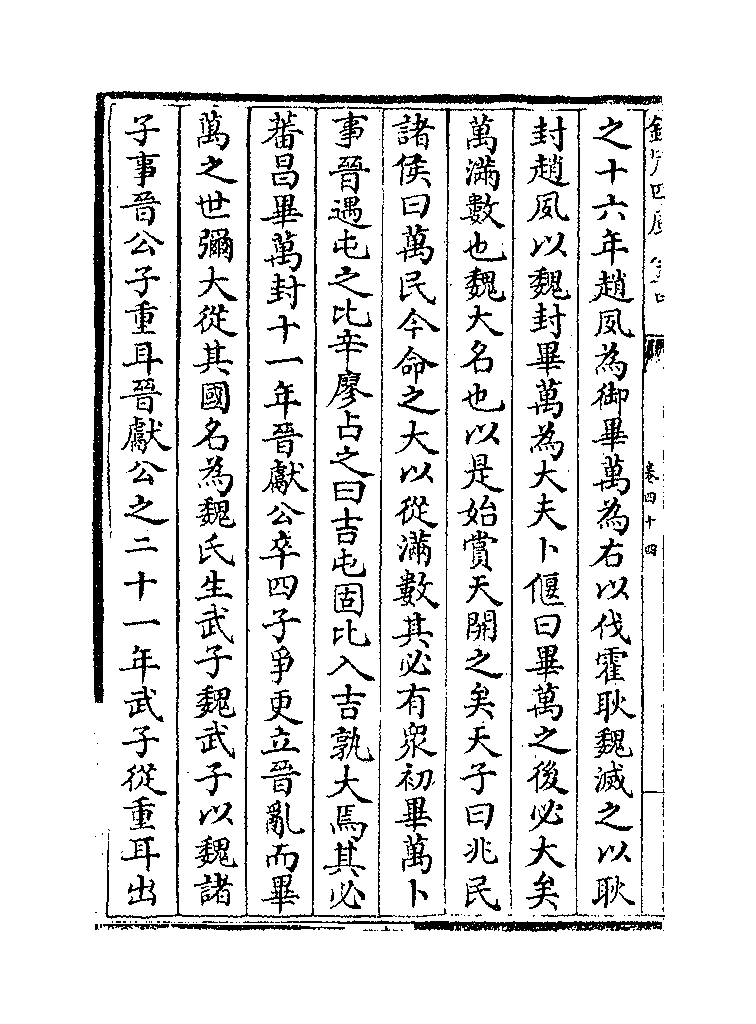 之十六年趙夙為御畢萬為右以伐霍耿魏滅之以耿
封趙夙以魏封畢萬為大夫卜偃曰畢萬之後必大矣
萬滿數也魏大名也以是始賞天開之矣天子曰兆民
諸侯曰萬民今命之大以從滿數其必有眾初畢萬卜
事晉遇屯之比辛廖占之曰吉屯固比入吉孰大焉其必
蕃昌畢萬封十一年晉獻公卒四子爭更立晉亂而畢
萬之世彌大從其國名為魏氏生武子魏武子以魏諸
子事晉公子重耳晉獻公之二十一年武子從重耳出
卷四十四